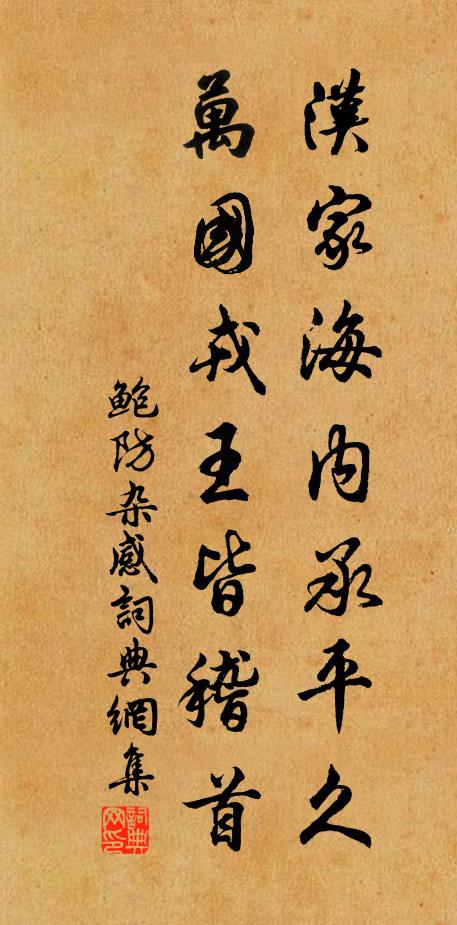 漢家海内承平久
萬國戎王皆稽首
鮑防杂感詞典網集
詞典網印